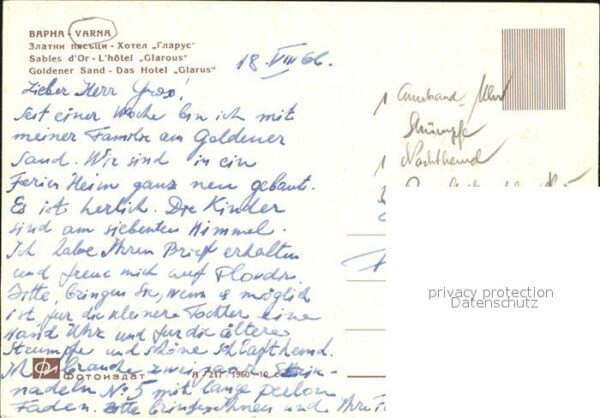 ВАРНА - VARNA
Златни пясъци - Хотел „Гларус"
Sables d'Or - L'hôtel „Glarous"
Goldener Sand - Das Hotel „Glarus"
18 VIII 66.
Lieber Herr Gros!
Seit einer Woche bin ich mit
meiner Familie am Goldener
Sand. Wir sind in ein
Ferien Heim ganz neu gebaut.
Es ist herlich. Die Kinder
sind am siebenten Himmel.
Ich habe Ihren Brief erhalten
und freue mich auf
Bitte, bringen Sie, wenn es möglich
ist fur die kleinere Tochter eine
Hand Uhr und fur die ältere
Strumpfe und schöne Schlafhemd.
Ich brauche zwei
nadeln No 5 mit lange perlon
Faden. Bitte bringen Ihnen und Ihre
1 Armband Uhr
Strümpfe
1 Nachthemd
2
ФОТОИЗДАТ
1960
privacy protection
Datenschutz